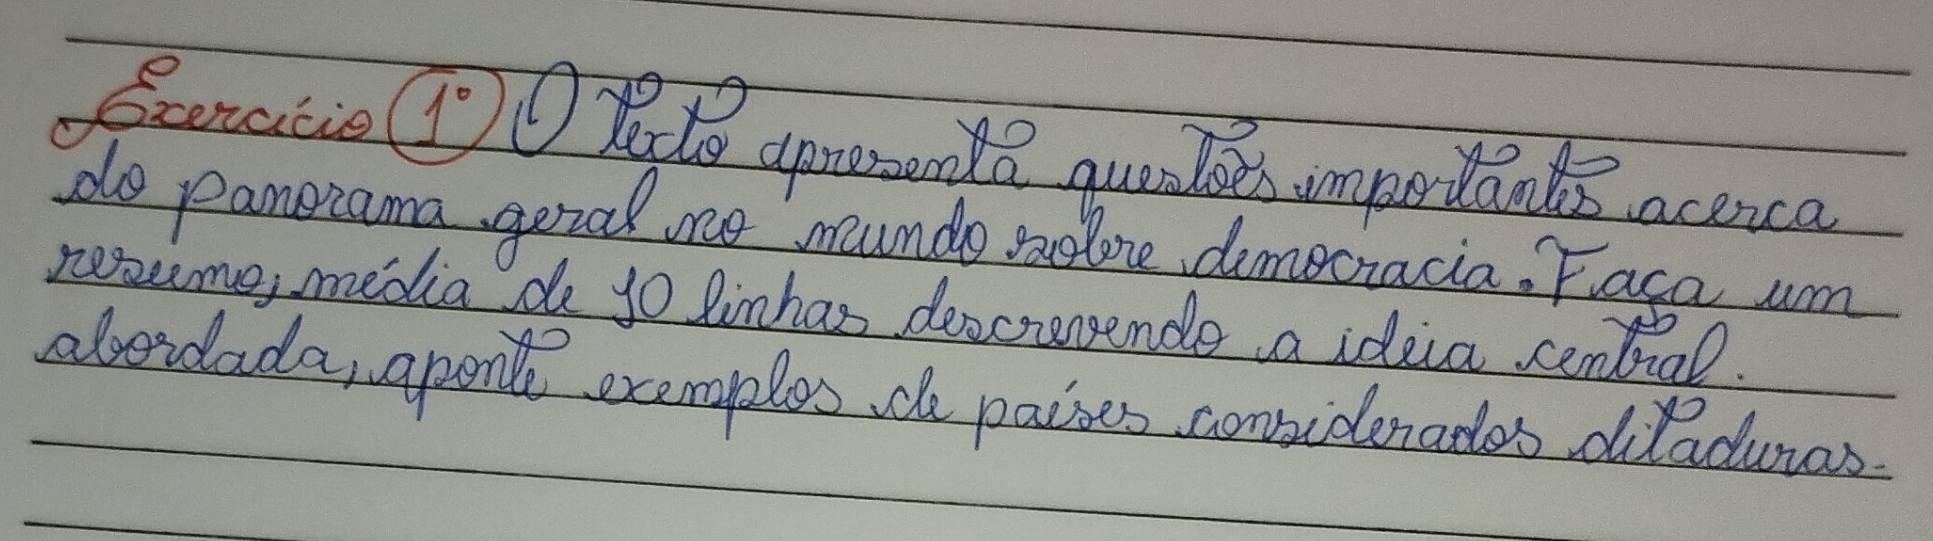 Exercício 1º O Texto apresenta questões importantes acerca
do panorama geral no mundo sobre democracia. Faça um
resumo, média de 10 linhas descrevendo a idéia central.
abordada, aponte exemplos de países considerados ditaduras.